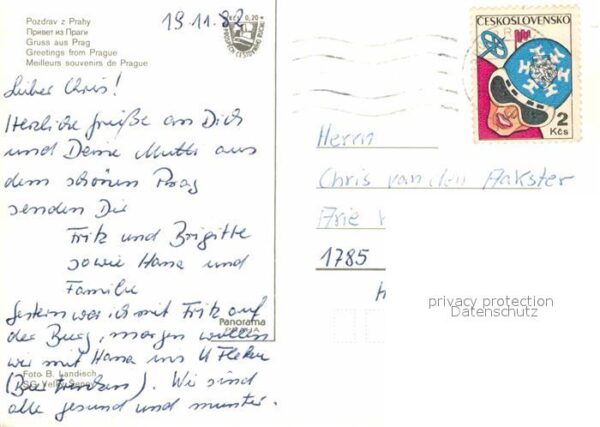 Pozdrav z Prahy
Привет из Праги
Gruss aus Prag
Greetings from Prague
Meilleurs souvenirs de Prague
19.11.82
KČS 0,20
ČESKOSLOVENSKO
2
Kčs
Lieber Chris!
Herzliche Grüße an Dich
und Deine Mutti aus
dem schönen Prag
senden Dir
Fritz und Brigitte
sowie Hana und
Familie
Gestern war ich mit Fritz auf
der Burg, morgen wollen
wir mit Hana ins U Fleků
(Bier trinken). Wir sind
alle gesund und munter.
Panorama
PRAHA
Foto B. Landisch
Herrn
Chris van den Aakster
Arie
1785
privacy protection
Datenschutz